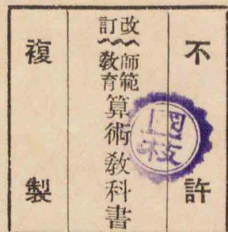 不許
改訂 師範教育 算術教科書
國枝
複製